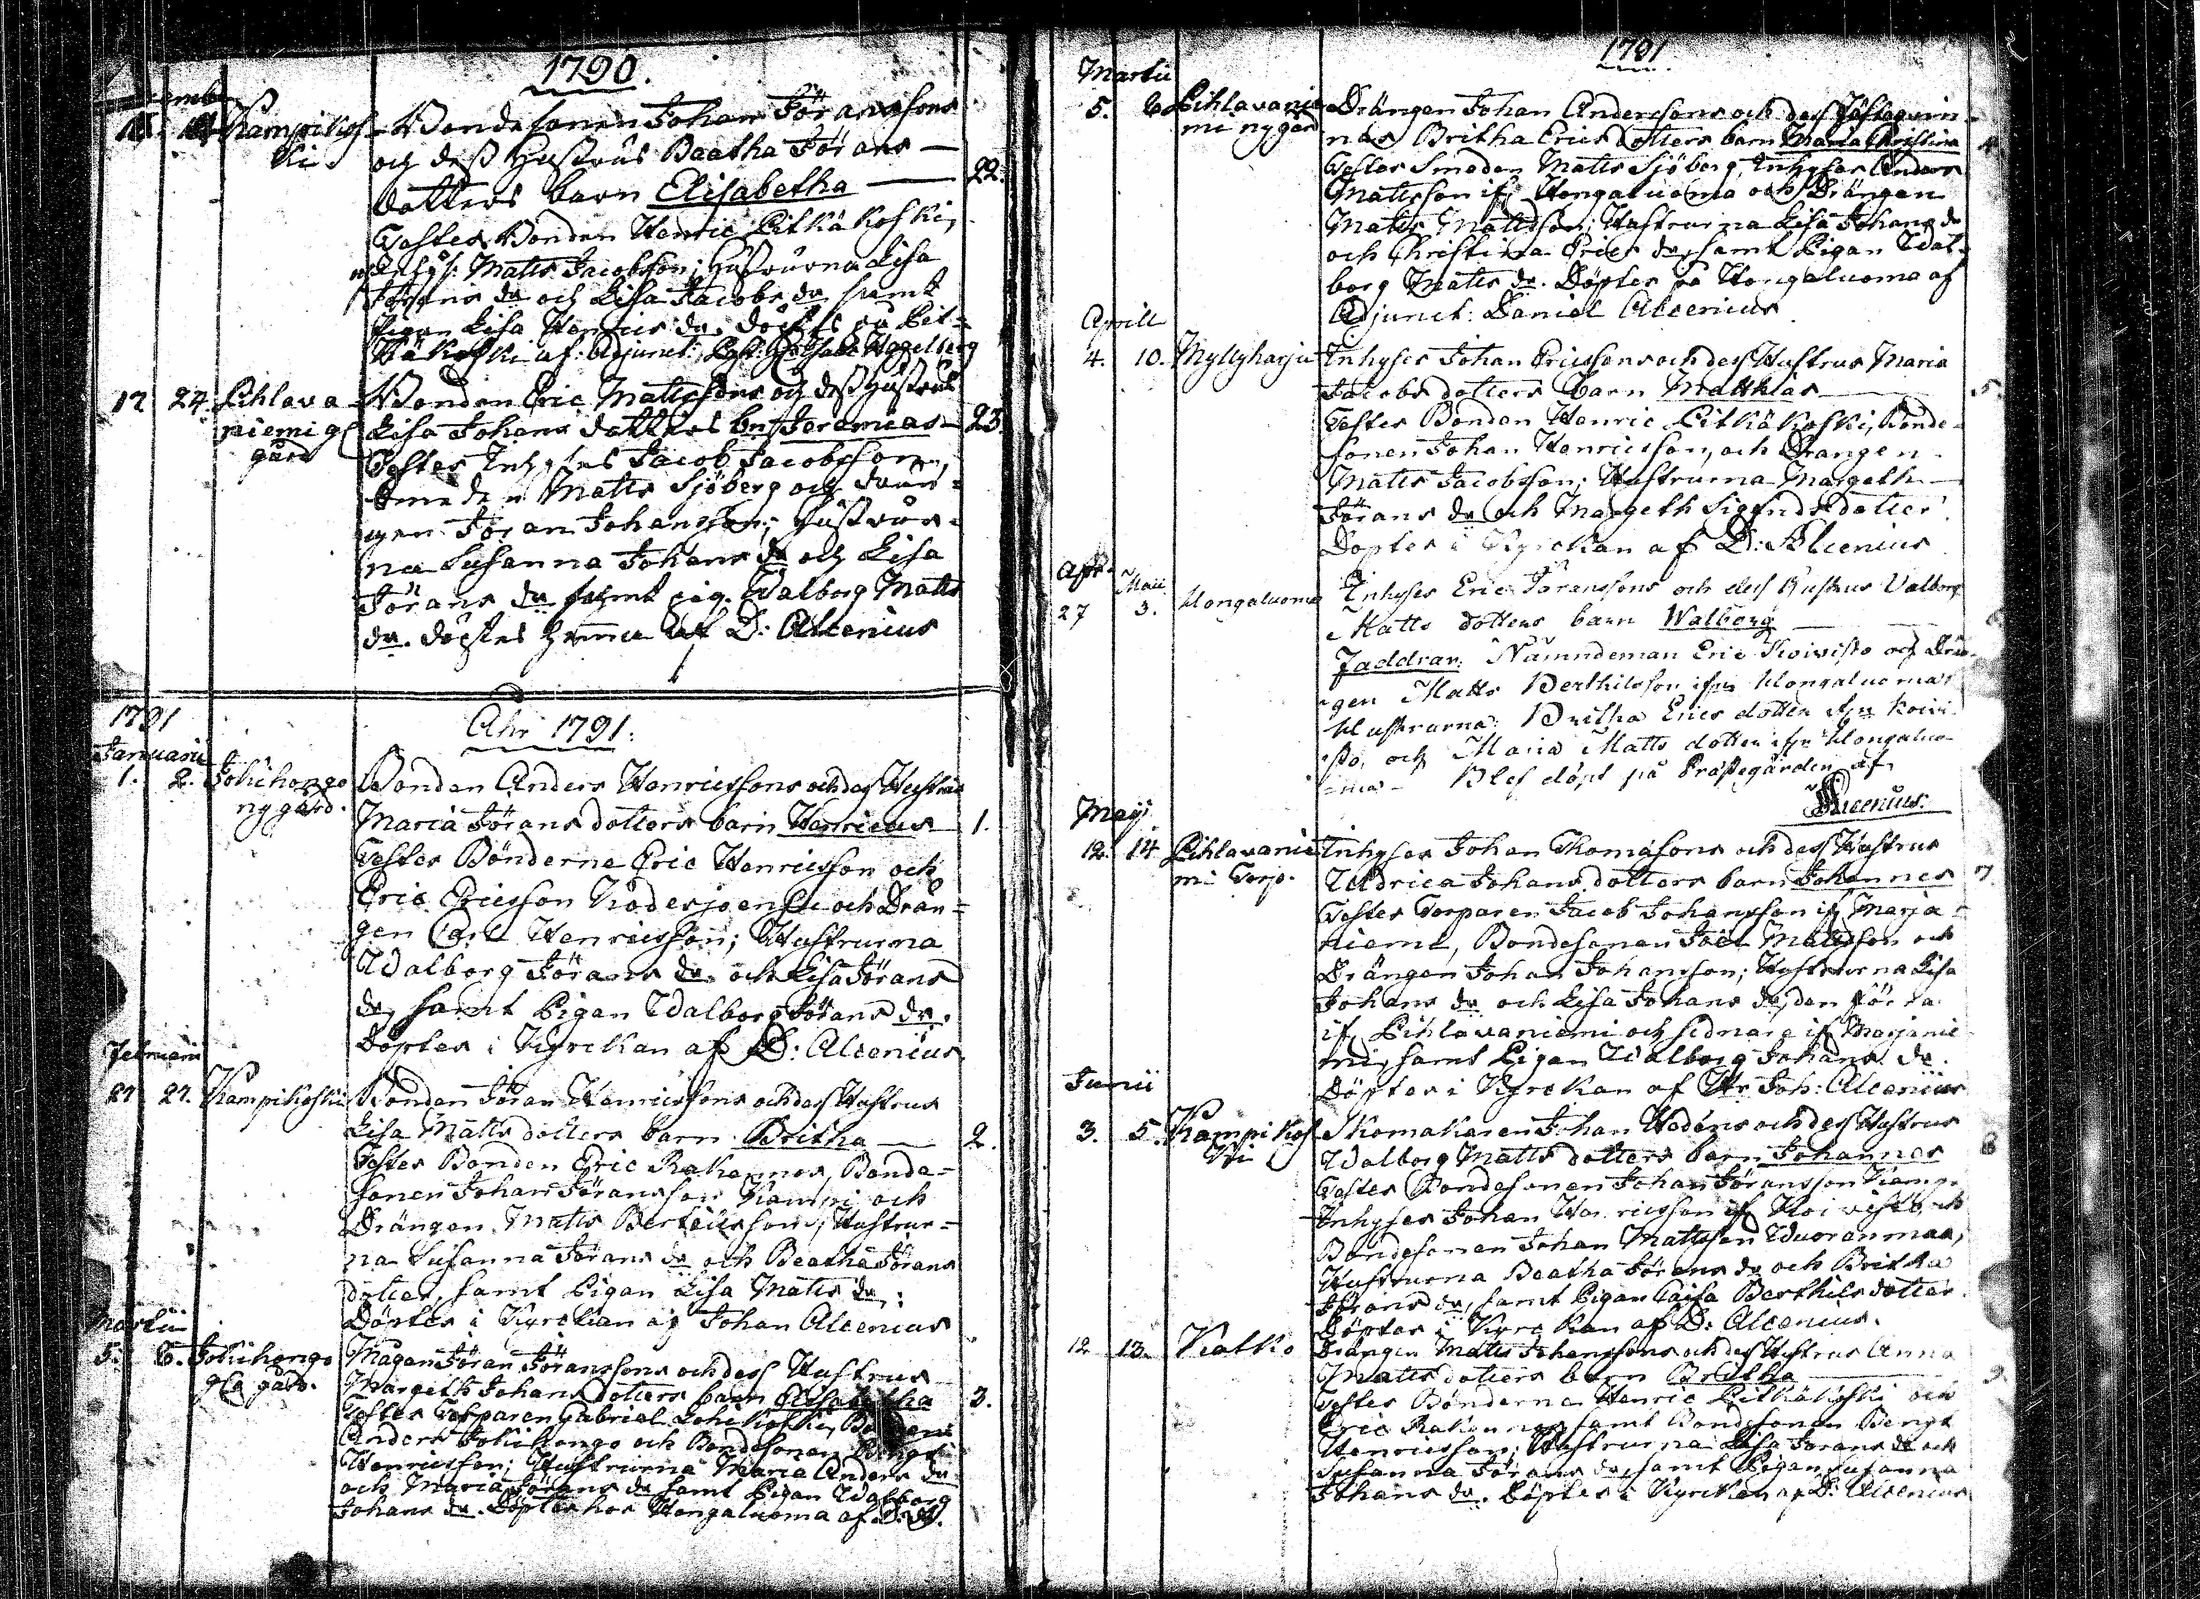 1790.
Kampikos- Bondesonen Johan Jöranssons
ki och dess Hustrus Beatha Jörans
dotters barn Elisabetha 22.
Testes Bonden Henric Pitkäkoski,
Matts Jacobsson; Hustrurna Lisa
Jörans dr och Lisa Jacobs dr samt
Pigan Lisa Henrics dr. döptes på Pit=
käkoski af Adjunct:
17 24. Pihlava Bonden Eric Mattssons och dess Hustrus
niemi Lisa Johans dotters bn Jeremias 23.
gård Testes Inhyses Jacob Jacobsson,
Smeden Matts Sjöberg och drän=
gen Jöran Johansson; Hustrur=
na Susanna Johans dr och Lisa
Jörans dr samt pig. Walborg Matts
dr. döptes hemma af D: Alcenius
1791
Åhr 1791.
Januarii
1. 2. Jokihongo Bonden Anders Henricssons och dess Hustrus
ny gård. Maria Jörans dotters barn Henricus 1.
Testes Bönderne Eric Henricsson och
Eric Ericsson Kodesjoensu och Drän=
gen Carl Henricsson; Hustrurna
Walborg Jörans dr och Lisa Jörans
dr, samt Pigan Walborg Jörans dr.
Döptes i Kyrckan af D: Alcenius
Februarii
27. Kampikoski Bonden Jöran Henricssons och dess Hustrus
Lisa Matts dotters barn Britha 2.
Testes Bonden Eric Rakennos, Bonde=
sonen Johan Jöransson Kampi och
Drängen Matts Bertilsson; Hustrur=
na Susanna Jörans dr och Beatha Jörans
dotter, samt Pigan Lisa Matts dr;
Döptes i Kyrckan af Johan Alcenius
Martii
5. 6. Jokihongo Jöran Jöranssons och dess Hustrus
gård. Margeth Johans dotters barn Elisabetha 3.
Testes Torparen Gabriel Lohikoski,
Anders Jokihongo och Bondesonen Bengt
Henricsson; Hustrurna Maria Anders dr
och Maria Jörans dr samt Pigan Walborg
Johans dr. Döptes hos Hongaluoma af D: A.
1791
Martii
5. 6. Pihlavanie- Drängen Johan Anderssons och dess
mi nygård Britha Erics dotters barn Maria Christina 4.
Testes Smeden Matts Sjöberg, Inhyses Anders
Mattsson if. Hongaluoma och Drängen
Matts Mattsson; Hustrurna Lisa Johans dr
och Christina Erics dr, samt Pigan Wal=
borg Matts dr. Döptes på Hongaluoma af
Adjunct: Daniel Alcenius
Aprill
4. 10. Myllyharju Inhyses Johan Ericssons och dess Hustrus Maria
Jacobs dotters barn Matthias 5.
Testes Bonden Henric Pitkäkoski, Bonde=
sonen Johan Henricsson, och Drängen
Matts Jacobsson; Hustrurna Margeth
Jörans dr och Margeth Sigfrids dotter.
Döptes i Kyrckan af D: Alcenius
Apr. Maii
27 3. Hongaluoma Inhyses Eric Jöranssons och dess Hustrus Valborg
Matts dotters barn Walborg
Faddrar: Nämndeman Eric Koivisto och Drän-
gen Matts Berthilsson ifrn Hongaluoma;
Hustrurna: Britha Erics dotter ifrn Koivi-
sto, och Maria Matts dotter ifrn Hongaluo-
ma. Blef döpt på Prästegården af
Alcenius.
Maji
12. 14. Pihlavanie- Inhyses Johan Thomassons och dess Hustrus
mi Torp. Uldrica Johans dotters barn Johannes 7.
Testes Torparen Jacob Johansson if Marja
niemi, Bondesonen Joel Mattsson och
Drängen Johan Johansson; Hustrurna Lisa
Johans dr och Lisa Johans dr, den förra
if. Pihlavaniemi och sednare if Marjanie
mi, samt Pigan Walborg Johans dr.
Döptes i Kyrckan af Hr Joh: Alcenius
Junii
3. 5. Kampikos- Skomakaren Johan Hedéns och dess Hustrus
ki Walborg Matts dotters barn Johannes 8
Testes Bondesonen Johan Jöransson Kamp.
Inhyses Johan Henricsson if Koivisto och
Bondesonen Johan Mattsson Wuoranmaa,
Hustrurna Beatha Jörans dr och Britha
Jörans dr, samt Pigan Caisa Berthils dotter.
Döptes i Kyrckan af D: Alcenius.
12 13. Katko Drängen Matts Johanssons och dess Hustrus Anna
Matts dotters barn Britha 9
Testes Bönderna Henric Pitkäkoski och
Eric Rakennos, samt Bondesonen Bengt
Henricsson; Hustrurna Lisa Jörans dr och
Susanna Jörans dr, samt Pigan Susanna
Johans dr. Döptes i Kyrckan af D: Alcenius